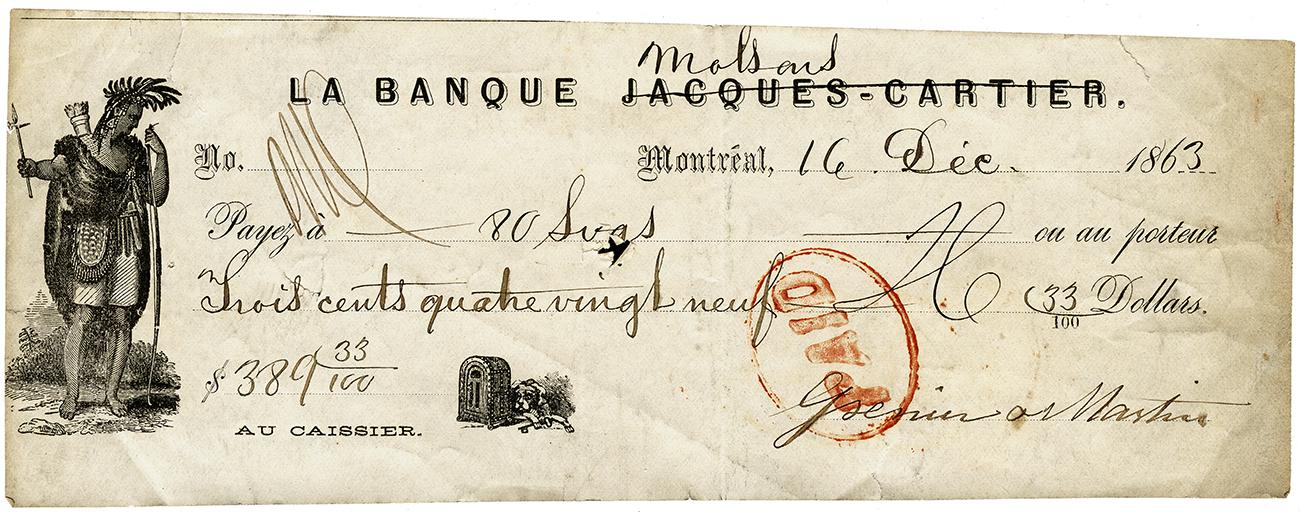 Molsons
LA BANQUE JACQUES-CARTIER.
No. Montréal, 16 Déc. 1863
Payez à 80 ou au porteur
Trois cents quatre vingt neuf 33/100 Dollars.
$ 389 33/100
PAID
AU CAISSIER.
Martin